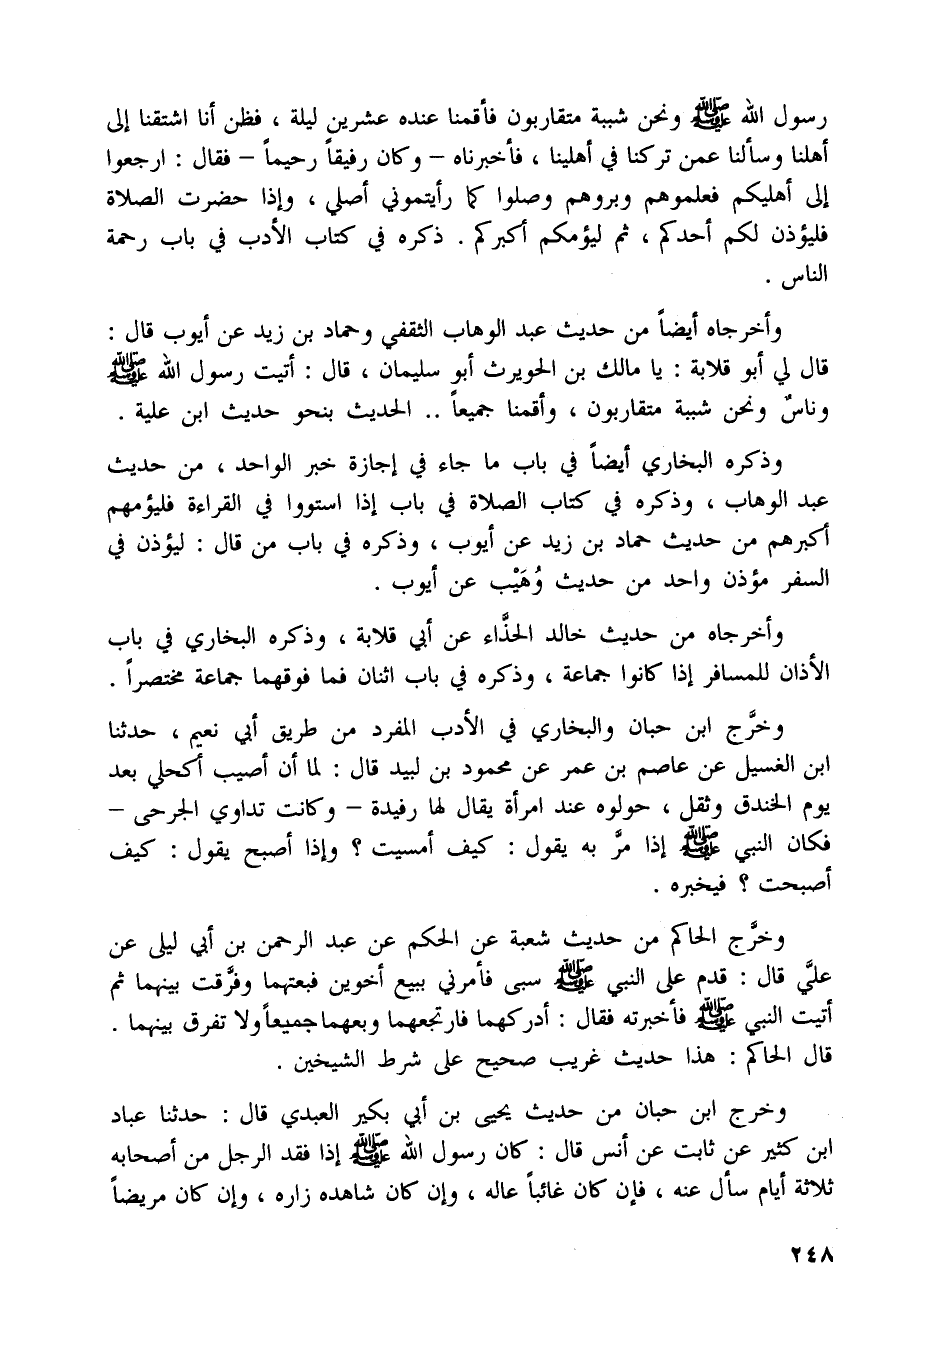 رسول الله ﷺ ونحن شببة متقاربون فأقمنا عنده عشرين ليلة ، فظن أنا اشتقنا إلى
أهلنا وسألنا عمن تركنا في أهلينا ، فأخبرناه – وكان رفيقاً رحيماً – فقال : ارجعوا
إلى أهليكم فعلموهم وبروهم وصلوا كما رأيتموني أصلي ، وإذا حضرت الصلاة
فليؤذن لكم أحدكم ، ثم ليؤمكم أكبركم . ذكره في كتاب الأدب في باب رحمة
الناس .
وأخرجاه أيضاً من حديث عبد الوهاب الثقفي وحماد بن زيد عن أيوب قال :
قال لي أبو قلابة : يا مالك بن الحويرث أبو سليمان ، قال : أتيت رسول الله ﷺ
وناسٌ ونحن شببة متقاربون ، وأقمنا جميعاً .. الحديث بنحو حديث ابن علية .
وذكره البخاري أيضاً في باب ما جاء في إجازة خبر الواحد ، من حديث
عبد الوهاب ، وذكره في كتاب الصلاة في باب إذا استووا في القراءة فليؤمهم
أكبرهم من حديث حماد بن زيد عن أيوب ، وذكره في باب من قال : ليؤذن في
السفر مؤذن واحد من حديث وُهَيْب عن أيوب .
وأخرجاه من حديث خالد الحذَّاء عن أبي قلابة ، وذكره البخاري في باب
الأذان للمسافر إذا كانوا جماعة ، وذكره في باب اثنان فما فوقهما جماعة مختصراً .
وخرَّج ابن حبان والبخاري في الأدب المفرد من طريق أبي نعيم ، حدثنا
ابن الغسيل عن عاصم بن عمر عن محمود بن لبيد قال : لما أن أصيب أكحلي بعد
يوم الخندق وثقل ، حولوه عند امرأة يقال لها رفيدة – وكانت تداوي الجرحى –
فكان النبي ﷺ إذا مرَّ به يقول : كيف أمسيت ؟ وإذا أصبح يقول : كيف
أصبحت ؟ فيخبره .
وخرَّج الحاكم من حديث شعبة عن الحكم عن عبد الرحمن بن أبي ليلى عن
عليَّ قال : قدم على النبي ﷺ سبى فأمرني ببيع أخوين فبعتهما وفرَّقت بينهما ثم
أتيت النبي ﷺ فأخبرته فقال : أدركهما فارتجعهما وبعهما جميعاً ولا تفرق بينهما .
قال الحاكم : هذا حديث غريب صحيح على شرط الشيخين .
وخرج ابن حبان من حديث يحيى بن أبي بكير العبدي قال : حدثنا عباد
ابن كثير عن ثابت عن أنس قال : كان رسول الله ﷺ إذا فقد الرجل من أصحابه
ثلاثة أيام سأل عنه ، فإن كان غائباً عاله ، وإن كان شاهده زاره ، وإن كان مريضاً
٢٤٨